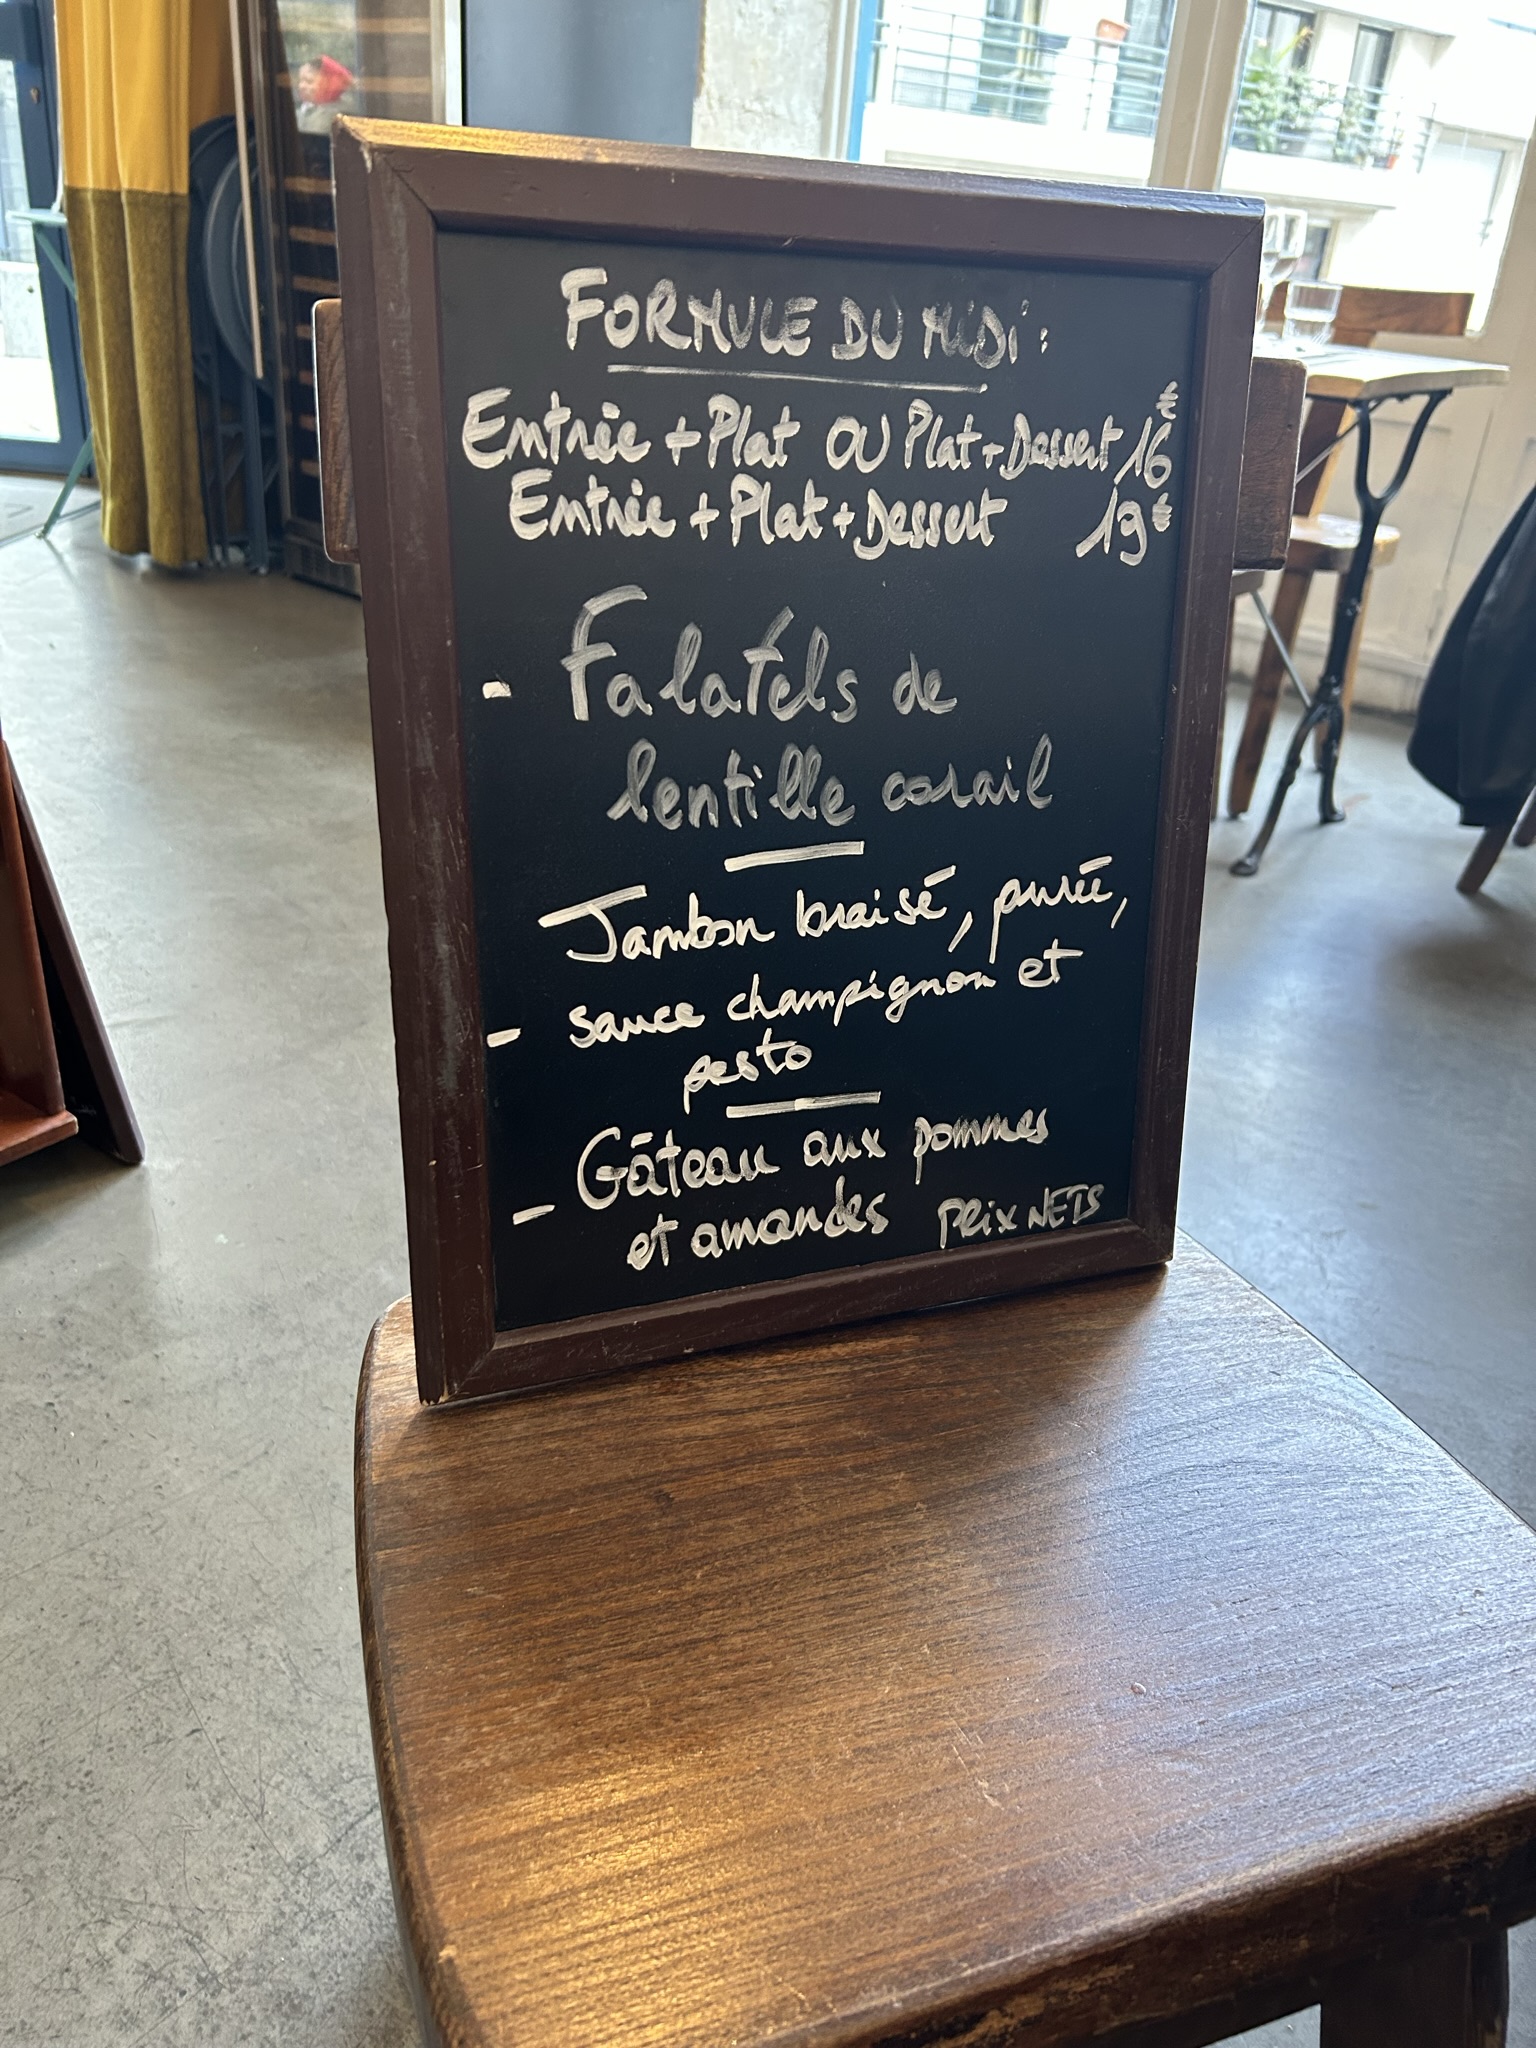 FORMULE DU MiDi :
Entrée + Plat OU Plat + Dessert 16€
Entrée + Plat + Dessert 19€
- Falafels de
lentille corail
Jambon braisé, purée,
- sauce champignon et
pesto
Gâteau aux pommes
- et amandes PRiX NETS